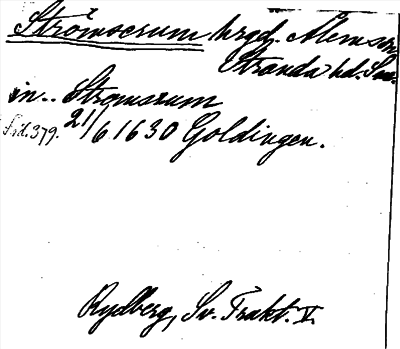 Strömserum hrgd. Ålem sn,
Stranda hd. Sm.
in.. Stromsrum
Sid. 379. 21/6 1630 Goldingen.
Rydberg, Sv. Trakt. V.